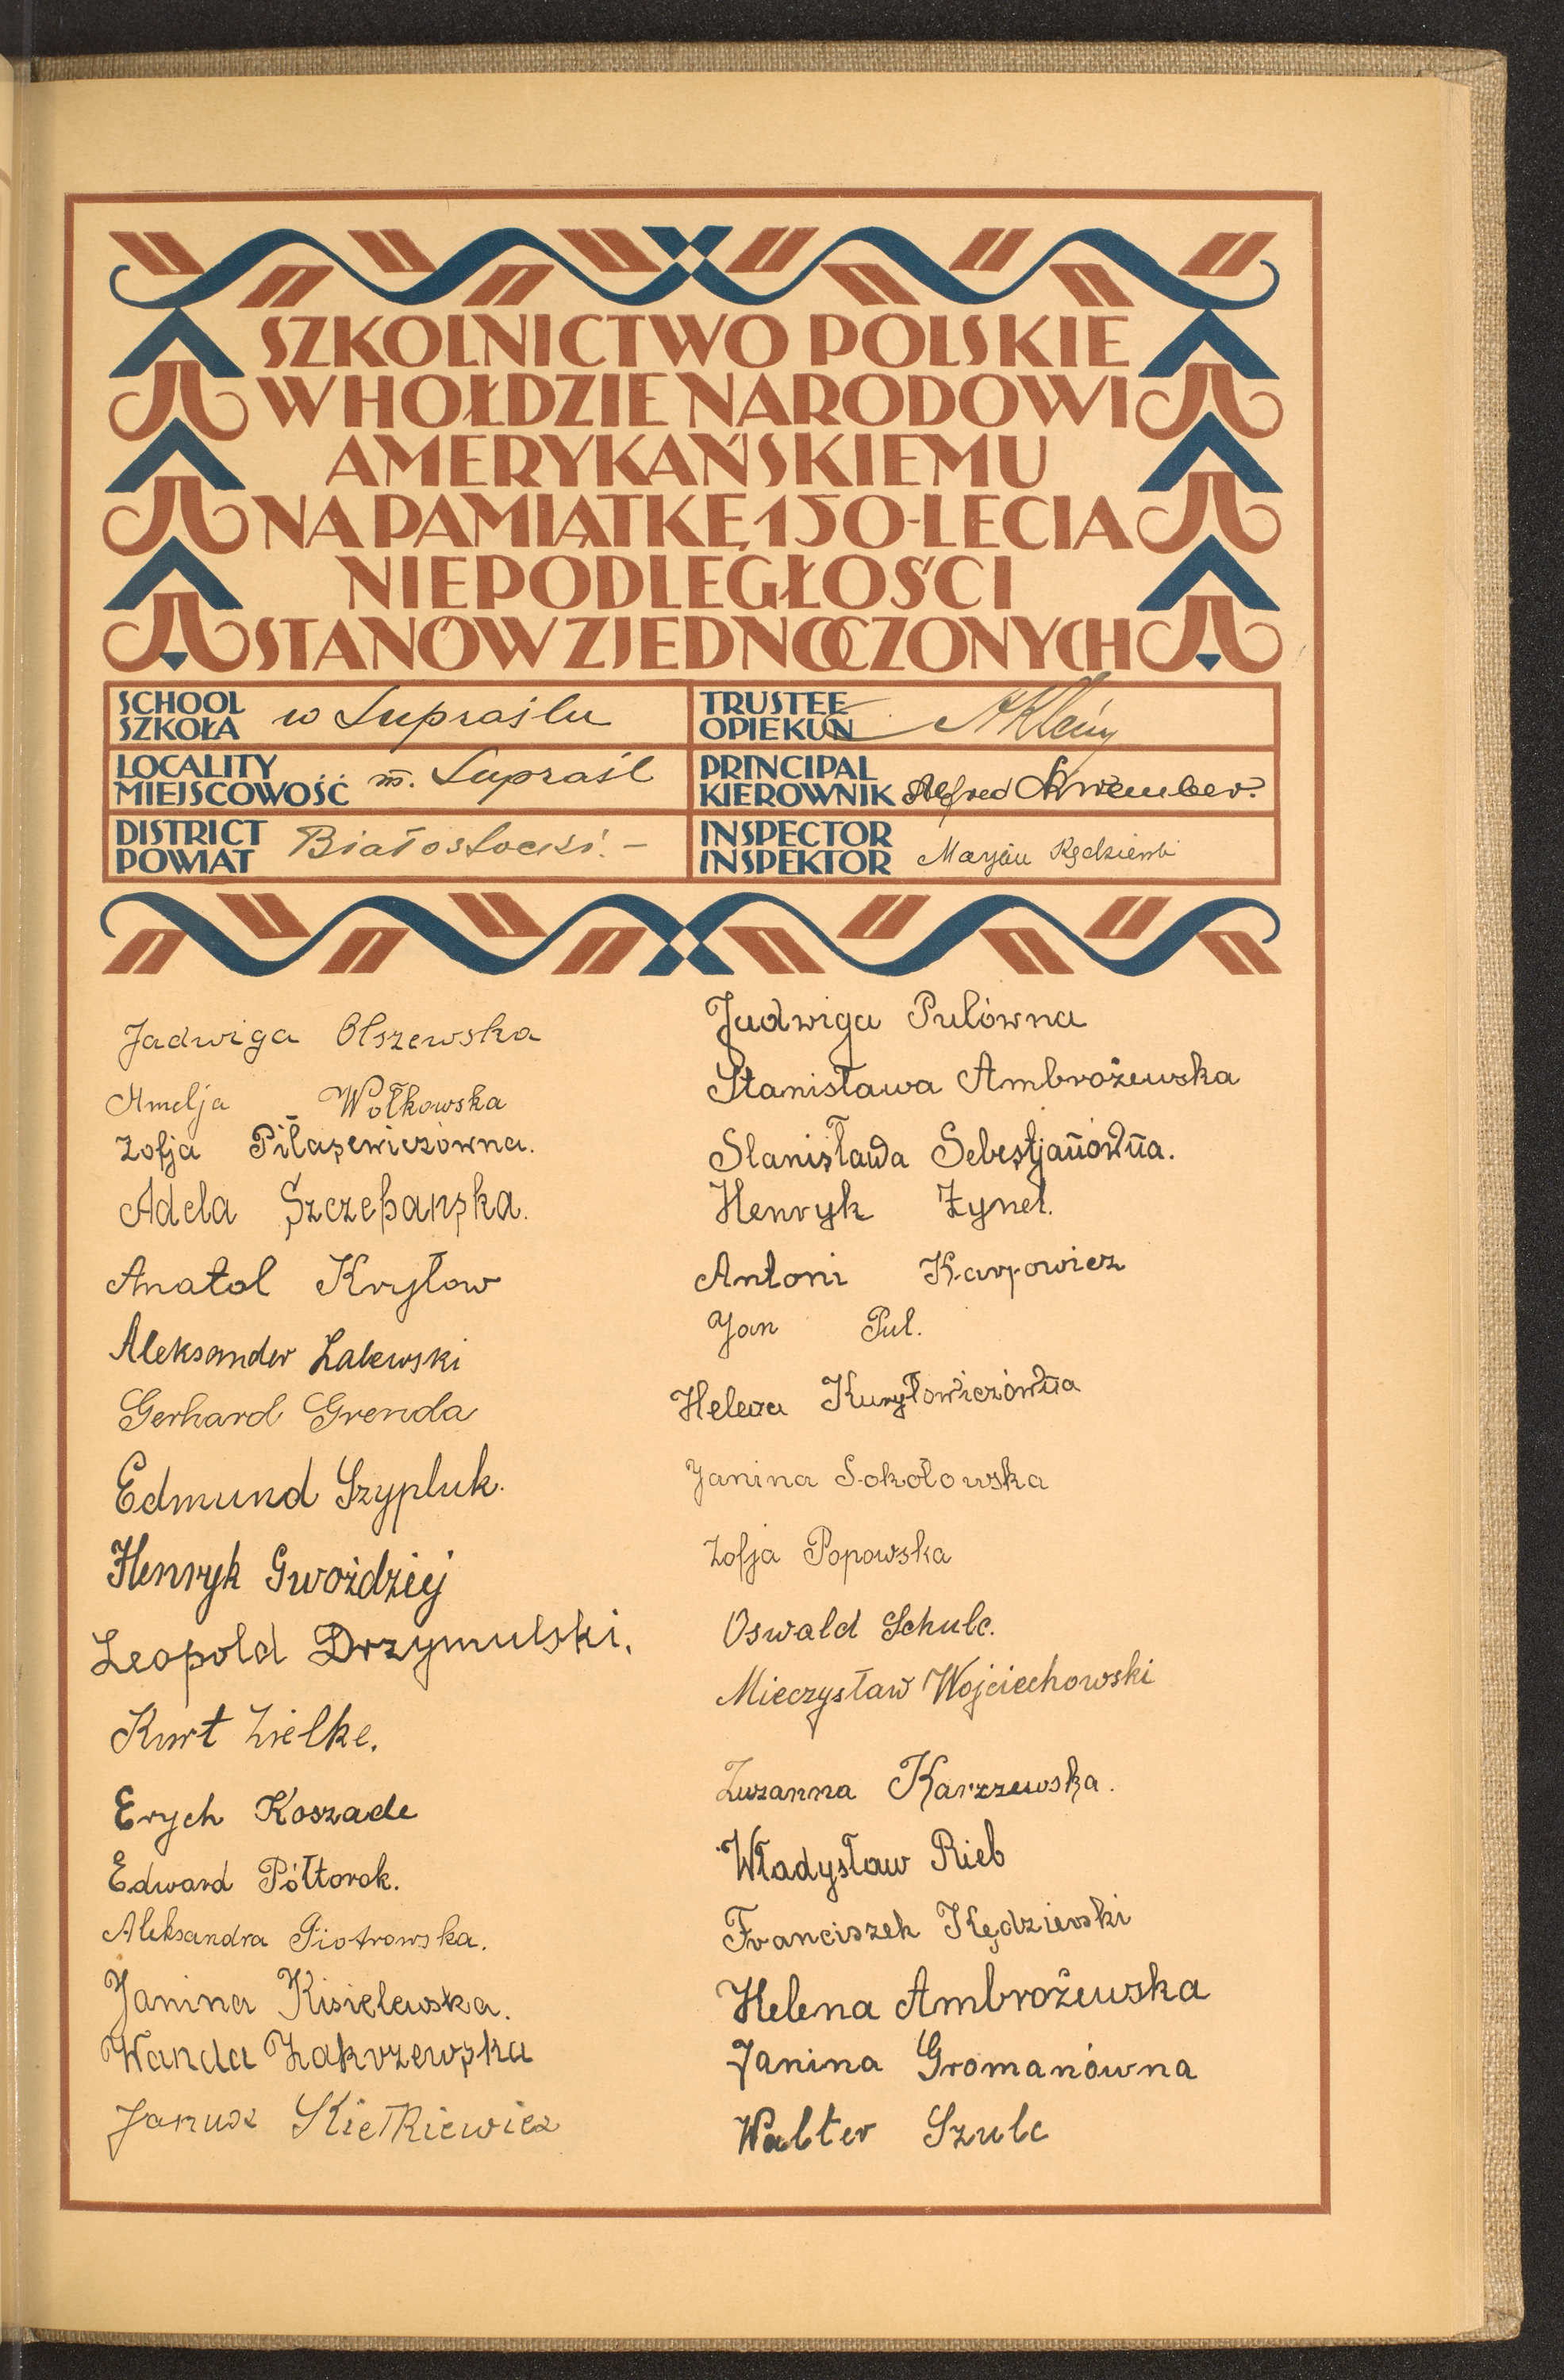 SZKOLNICTWO POLSKIE
W HOŁDZIE NARODOWI
AMERYKAŃSKIEMU
NA PAMIĄTKĘ 150-LECIA
NIEPODLEGŁOŚCI
STANÓW ZJEDNOCZONYCH
SCHOOL
SZKOŁA w Supraślu
TRUSTEE
OPIEKUN
LOCALITY
MIEJSCOWOŚĆ m. Supraśl
PRINCIPAL
KIEROWNIK Alfred
DISTRICT
POWIAT Białostocki. –
INSPECTOR
INSPEKTOR Maryan
Jadwiga Olszewska
Amelja Wołkowska
Zofja Piłaszewiczówna.
Adela Szczepańska.
Anatol Kryłow
Aleksander Zalewski
Gerhard Grenda
Edmund Szypluk.
Henryk Gwoździej
Leopold Drzymulski.
Kurt Zielke.
Erych Koszade
Edward Półtorak.
Aleksandra Piotrowska.
Janina Kisielewska.
Wanda Zakrzewska
Janusz Skiełkiewicz
Jadwiga Pulówna
Stanisława Ambrożewska
Stanisława Sebestjanówna.
Henryk Zynel.
Antoni Karpowicz
Jan Pul.
Helena Kuryłowiczówna
Janina Sokołowska
Zofja Popowska
Oswald Schulc.
Mieczysław Wojciechowski
Zuzanna Karzzewska.
Władysław Rieb
Franciszek Kędzierski
Helena Ambrożewska
Janina Gromanówna
Walter Szulc